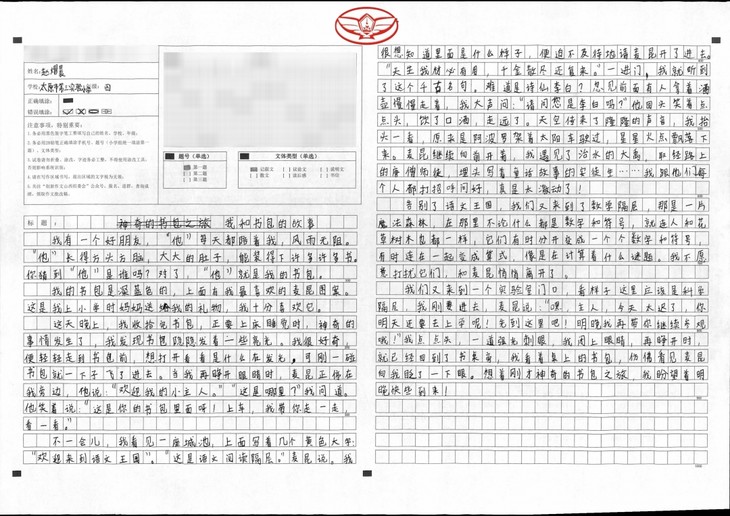 姓名:
学校:
正确填涂:
注意事项,特别重要:
题号(单选)
文体类型(单选)
第一题
第二题
第三题
记叙文
议论文
说明文
散文
读后感
书信
标题: 神奇的书包之旅 我和书包的故事
我有一个好朋友,“他”每天都陪着我,风雨无阻。
“他”长得方头方脑,大大的肚子,能装得下许多许多书。
你猜到“他”是谁吗?对了,“他”就是我的书包。
我的书包是深蓝色的,上面有我最喜欢的麦昆图案。
这是我上小学时妈妈送我的礼物,我十分喜欢它。
这天晚上,我收拾完书包,正要上床睡觉时,神奇的
事情发生了,我发现书包隐隐发着一些亮光,我很好奇,
便轻轻走到书包前,想打开看看是什么在发光。可刚一碰
书包就一下子飞了进去。当我再睁开眼睛时,麦昆正停在
我旁边,他说:“欢迎我的小主人。”“这是哪里?”我问道。
他笑着说:“这是你的书包里面呀!上车,我带你走一走,
看一看。”
不一会儿,我看见一座城池,上面写着几个黄色大字:
“欢迎来到语文王国”。“这是语文阅读隔层。”麦昆说。我
很想知道里面是什么样子,便迫不及待地请麦昆开了进去。
“天生我材必有用,千金散尽还复来。”一进门,我就听到
了这个千古名句,难道是诗仙李白?忽见前面有人拿着酒
壶慢慢走着,我大声问:“请问您是李白吗?”他回头笑着点
点头,饮了口酒,走远了。天空传来了隆隆的声音,我抬
头一看,原来是阿波罗驾着太阳车驶过,星星火点飘落下
来。麦昆继续向前开着,我遇见了治水的大禹,取经路上
的唐僧师徒,埋头写着童话故事的安徒生……我跟他们每
个人都打招呼问好,真是太激动了!
告别了语文大国,我们又来到了数学隔层,那是一片
魔法森林,在那里不论什么都是数字和符号,就连人和花
草树木鸟都一样,它们有时分开变成一个个数字和符号,
有时连在一起变成算式,像是在计算着什么谜题。我不愿
意打扰它们,和麦昆悄悄离开了。
我们又来到一个实验室门口,看样子这里应该是科学
隔层,我刚要进去,麦昆说:“嘿,主人,今天太迟了,你
明天还要去上学呢!先到这里吧!明晚我再带你继续参观
哦!”我点点头,一道强光刺眼,我闭上眼睛,再睁开时,
就已经回到了书桌旁,我看着桌上的书包,仿佛看见麦昆
向我眨了一下眼。想着刚才神奇的书包之旅,我盼望着明
晚快些到来!